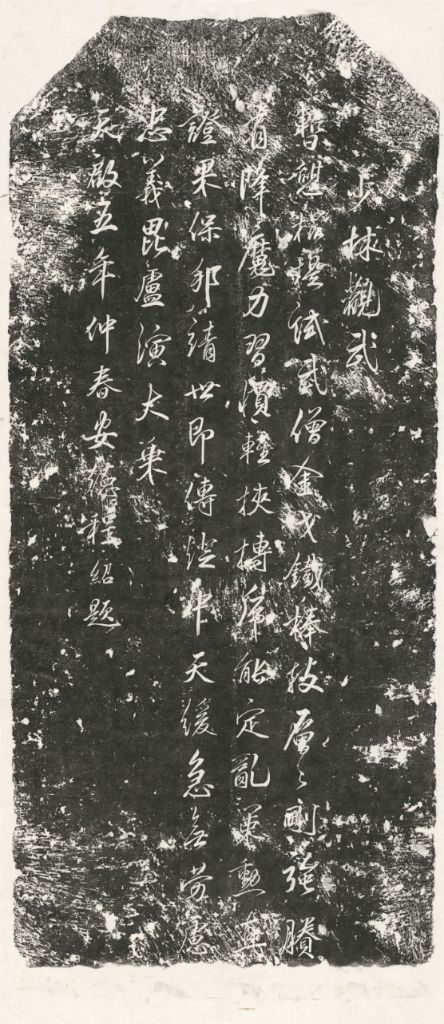 少林觀武
暫憩招提試武僧金戈鐵棒技層々剛強勝
有降魔力習慣輕挾搏虎能定亂策勳真
證果保邦靖世即傳燈中天緩急無勞慮
忠義毘盧演大乘
天啟五年仲春安德程紹題